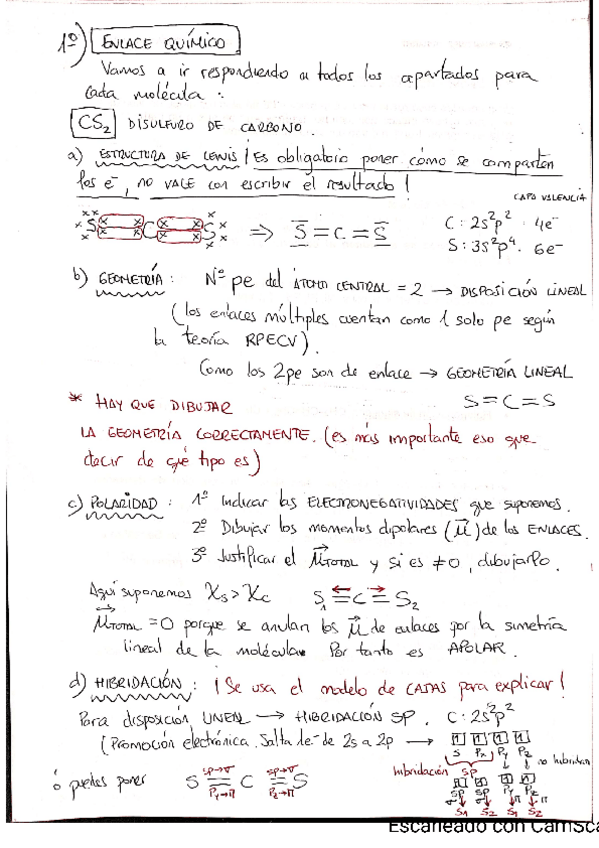 1º) ENLACE QUÍMICO
Vamos a ir respondiendo a todos los apartados para
cada molécula :
CS2 DISULFURO DE CARBONO.
a) ESTRUCTURA DE LEWIS ¡Es obligatorio poner cómo se comparten
los e-, no VALE con escribir el resultado!
CAPA VALENCIA
S C S ⇒ S=C=S
C: 2s²p² 4e-
S: 3s²p⁴. 6e-
b) GEOMETRÍA: Nº pe del ÁTOMO CENTRAL = 2 → DISPOSICIÓN LINEAL
(los enlaces múltiples cuentan como 1 solo pe según
la teoría RPECV).
Como los 2pe son de enlace → GEOMETRÍA LINEAL
S=C=S
* HAY QUE DIBUJAR
LA GEOMETRÍA CORRECTAMENTE. (es más importante eso que
decir de qué tipo es)
c) POLARIDAD : 1º Indicar las ELECTRONEGATIVIDADES que suponemos.
2º Dibujar los momentos dipolares (μ) de los ENLACES.
3º Justificar el μTOTAL y si es ≠0, dibujarlo.
Aquí suponemos χS > χC S1=C=S2
μTOTAL = 0 porque se anulan los μ de enlaces por la simetría
lineal de la molécula. Por tanto es APOLAR.
d) HIBRIDACIÓN : ¡Se usa el modelo de CAJAS para explicar!
Para disposición LINEAL → HIBRIDACIÓN SP. C: 2s²p²
(Promoción electrónica. Salta 1e- de 2s a 2p →
S Px Py Pz
hibridación SP no hibridan
ó puedes poner S C S
sp→σ sp→σ
Py→π Pz→π
SP SP Py Pz
σ σ π π
S1 S2 S1 S2
Escaneado con CamSca